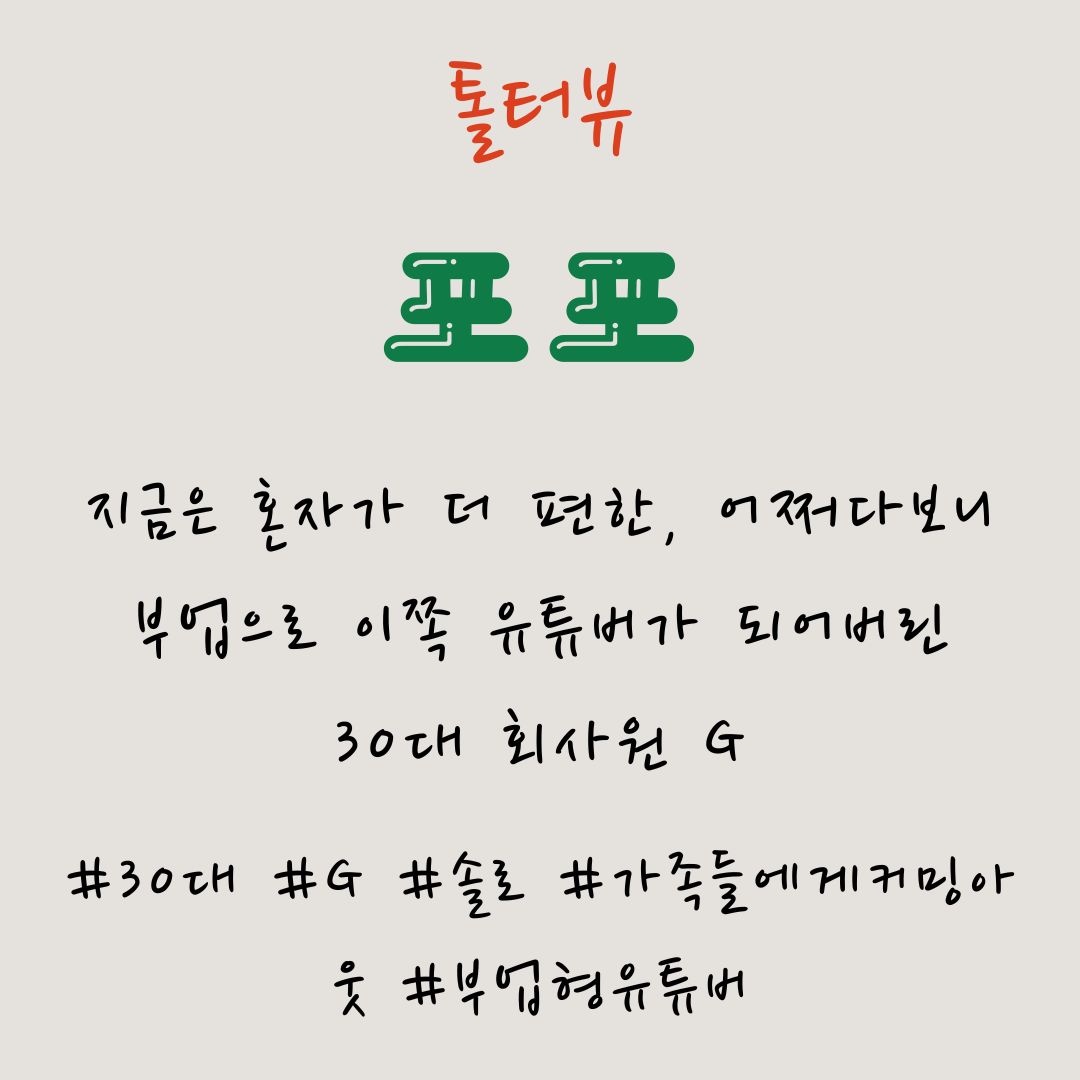 톨터뷰
포포
지금은 혼자가 더 편한, 어쩌다보니
부업으로 이쪽 유튜버가 되어버린
30대 회사원 G
#30대 #G #솔로 #가족들에게커밍아
웃 #부업형유튜버